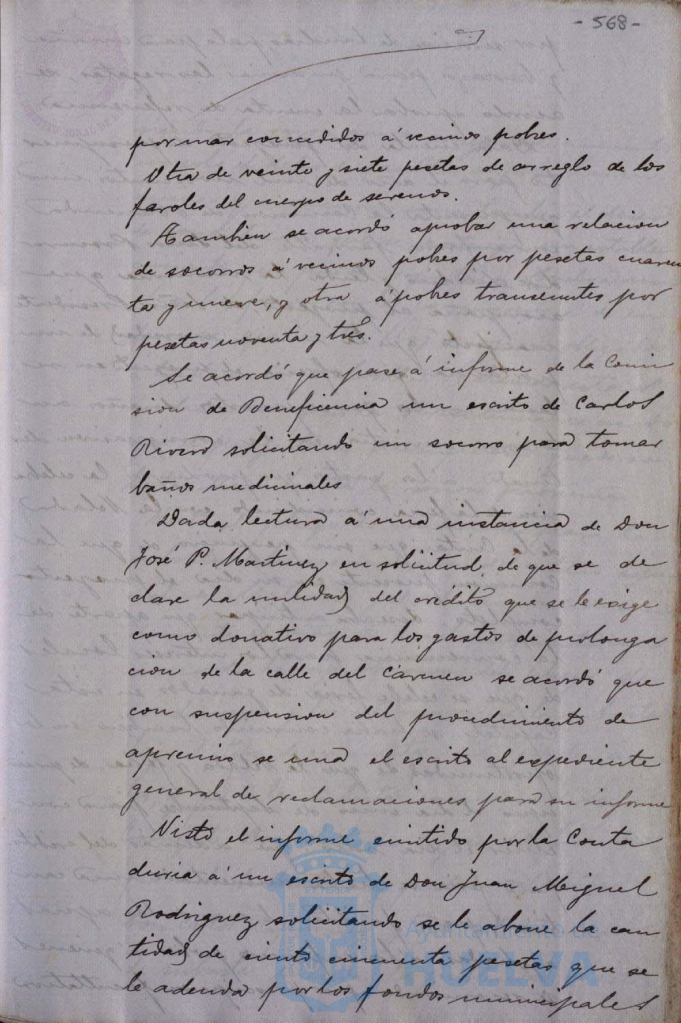 - 568 -
por mar concedidos á vecinos pobres.
Otra de veinte y siete pesetas de arreglo de los
faroles del cuerpo de serenos.
Tambien se acordó aprobar una relacion
de socorros á vecinos pobres por pesetas cuaren
ta y nueve, y otra á pobres transeuntes por
pesetas noventa y tres.
Se acordó que pase á informe de la Comi
sion de Beneficencia un escrito de Carlos
Rivero solicitando un socorro para tomar
baños medicinales
Dada lectura á una instancia de Don
José P. Martinez en solicitud de que se de
clare la nulidad del crédito que se le exige
como donativo para los gastos de prolonga
cion de la calle del Carmen se acordó que
con suspension del procedimiento de
apremio se una el escrito al expediente
general de reclamaciones para su informe
Visto el informe emitido por la Conta
duria á un escrito de Don Juan Miguel
Rodriguez solicitando se le abone la can
tidad de ciento cincuenta pesetas que se
le adeuda por los fondos municipales
HUELVA